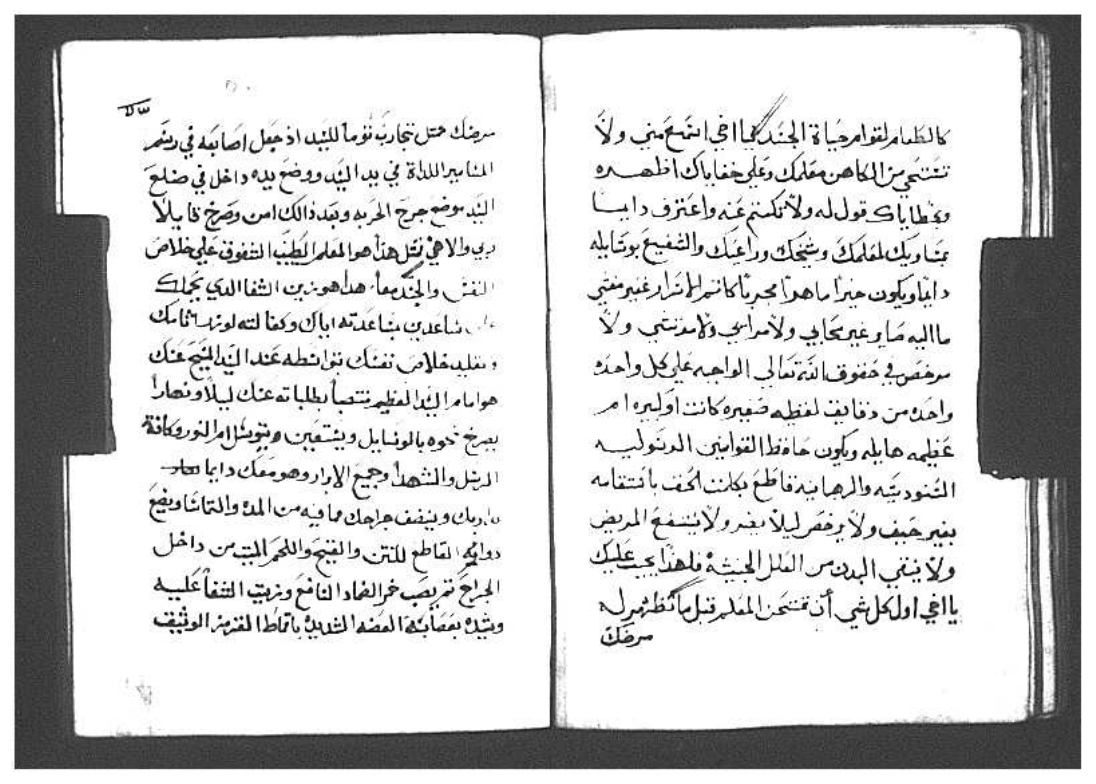 كالطعام لقوام حياة الجسد فيا اخي اسمع مني ولا
تستحي من الكاهن معلمك وعلى خفاياك اظهره
وخطاياك قول له ولا تكتم عنه واعترف دايما
بمساويك لمعلمك وشيخك وراعيك والشفيع بوسايله
دايما ويكون حبرا ماهرا مجربا كاتم الاسرار غير مفشي
ما اليه صاير غير محابي ولا مرايي ولا مرتشي ولا
مرخص في حقوق الله تعالى الواجبه على كل واحده
واحده من دقايق لفظه صغيره كانت او كبيره ام
عظيمه هايله ويكون حافظ القوانين الرسوليه
السنودسيه والرهبانيه قاطع بكلمت الحق باستقامه
بغير حيف ولا يرخص ليلا يغير ولا ينتفع المريض
ولا ينقي البدن من العلل الخبيثة فلهذا يجب عليك
يا اخي اول كل شي أن تمتحن المعلم قبل ما تظهر له
مرضك
٥٣
مرضك مثل تجارب توما للسيد اذ جعل اصابعه في رسم
المسامير اللذاة في يد السيد ووضع يده داخل في ضلع
السيد موضع جرح الحربه وبعد ذالك امن وصرخ قايلا
ربي والاهي مثل هذا هو المعلم الطبيب الشفوق على خلاص
النفس والجسد معا هذا هو زيت الشفا الذي يحملك
على ساعدين مساعدته اياك وكفالته لوزر اثامك
وتقليد خلاص نفسك بتوسطه عند السيد المسيح عنك
هو امام السيد العظيم منتصبا بطلباته عنك ليلا ونهارا
يصرخ نحوه بالوسايل ويستعين ويتوسل ام النور وكافة
الرسل والشهدا وجميع الابرار وهو معك دايما
يداريك وينضف جراحك مما فيه من المده والتماشا ويضع
دوايه القاطع للنتن والقيح واللحم الميت من داخل
الجراح ثم يصب خمر الضماد النافع وزيت الشفا عليه
ويشده بعصابة العضه الشديده باقماط القرمز الوثيق